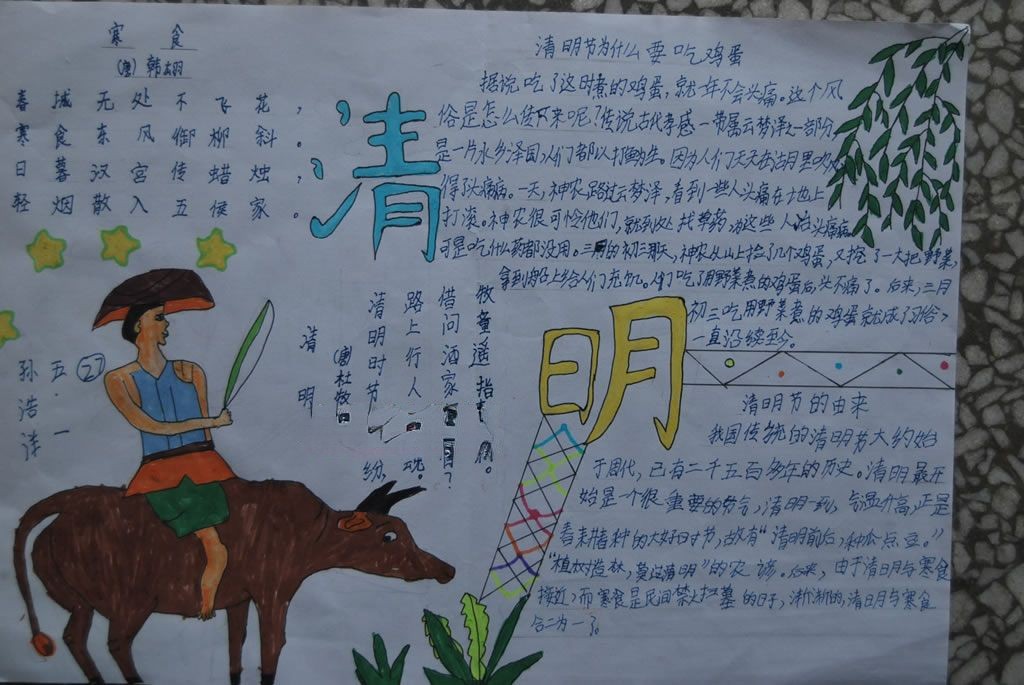 寒食
(唐)韩翃
春城无处不飞花，
寒食东风御柳斜。
日暮汉宫传蜡烛，
轻烟散入五侯家。
清
明
清明
(唐)杜牧
清明时节 纷
路上行人 魂。
借问酒家 ？
牧童遥指 。
五一
27
孙浩洋
清明节为什么要吃鸡蛋
据说吃了这时煮的鸡蛋，就一年不会头痛。这个风
俗是怎么传下来呢？传说古代孝感一带属云梦泽之一部分
是一片水乡泽国，人们都以打鱼为生。因为人们天天在湖里吹风
得了头痛病。一天，神农路过云梦泽，看到一些人头痛在地上
打滚。神农很可怜他们，就到处找草药为这些人治头痛病
可是吃什么药都没用。三月的初三那天，神农从山上捡了几个鸡蛋，又挖了一大把野菜，
拿到船上给人们充饥。人们吃了用野菜煮的鸡蛋后，头不痛了。后来，三月
初三吃用野菜煮的鸡蛋就成了习俗，
一直沿续至今。
清明节的由来
我国传统的清明节大约始
于周代，已有二千五百多年的历史。清明最开
始是一个很重要的节气，清明一到，气温升高，正是
春耕春种的大好时节，故有“清明前后，种瓜点豆。”
“植树造林，莫过清明”的农谚。后来，由于清明与寒食
接近，而寒食是民间禁火扫墓的日子，渐渐的，清明与寒食
合二为一了。